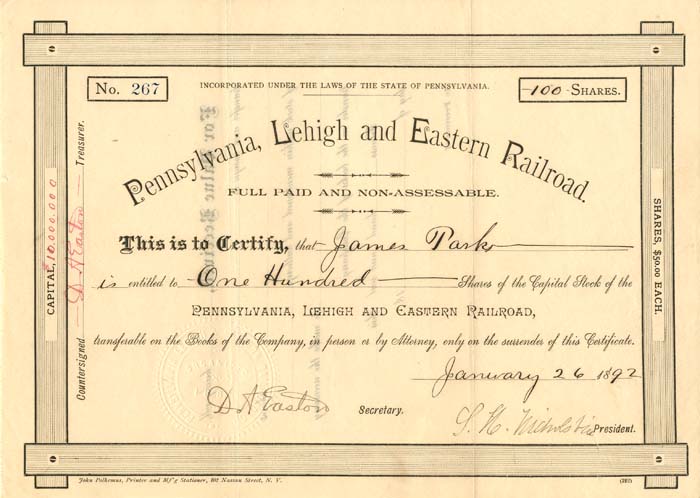 No. 267
INCORPORATED UNDER THE LAWS OF THE STATE OF PENNSYLVANIA.
100 SHARES.
Pennsylvania, Lehigh and Eastern Railroad.
FULL PAID AND NON-ASSESSABLE.
This is to Certify, that James Park
is entitled to One Hundred Shares of the Capital Stock of the
PENNSYLVANIA, LEHIGH AND EASTERN RAILROAD,
transferable on the Books of the Company, in person or by Attorney, only on the surrender of this Certificate.
January 26 1892
D A Easton Secretary.
S. H. Nichols Vice President.
CAPITAL, $10,000,000
Countersigned D A Easton Treasurer.
SHARES, $50.00 EACH.
John Polhemus, Printer and M'f'g Stationer, 102 Nassau Street, N. Y.